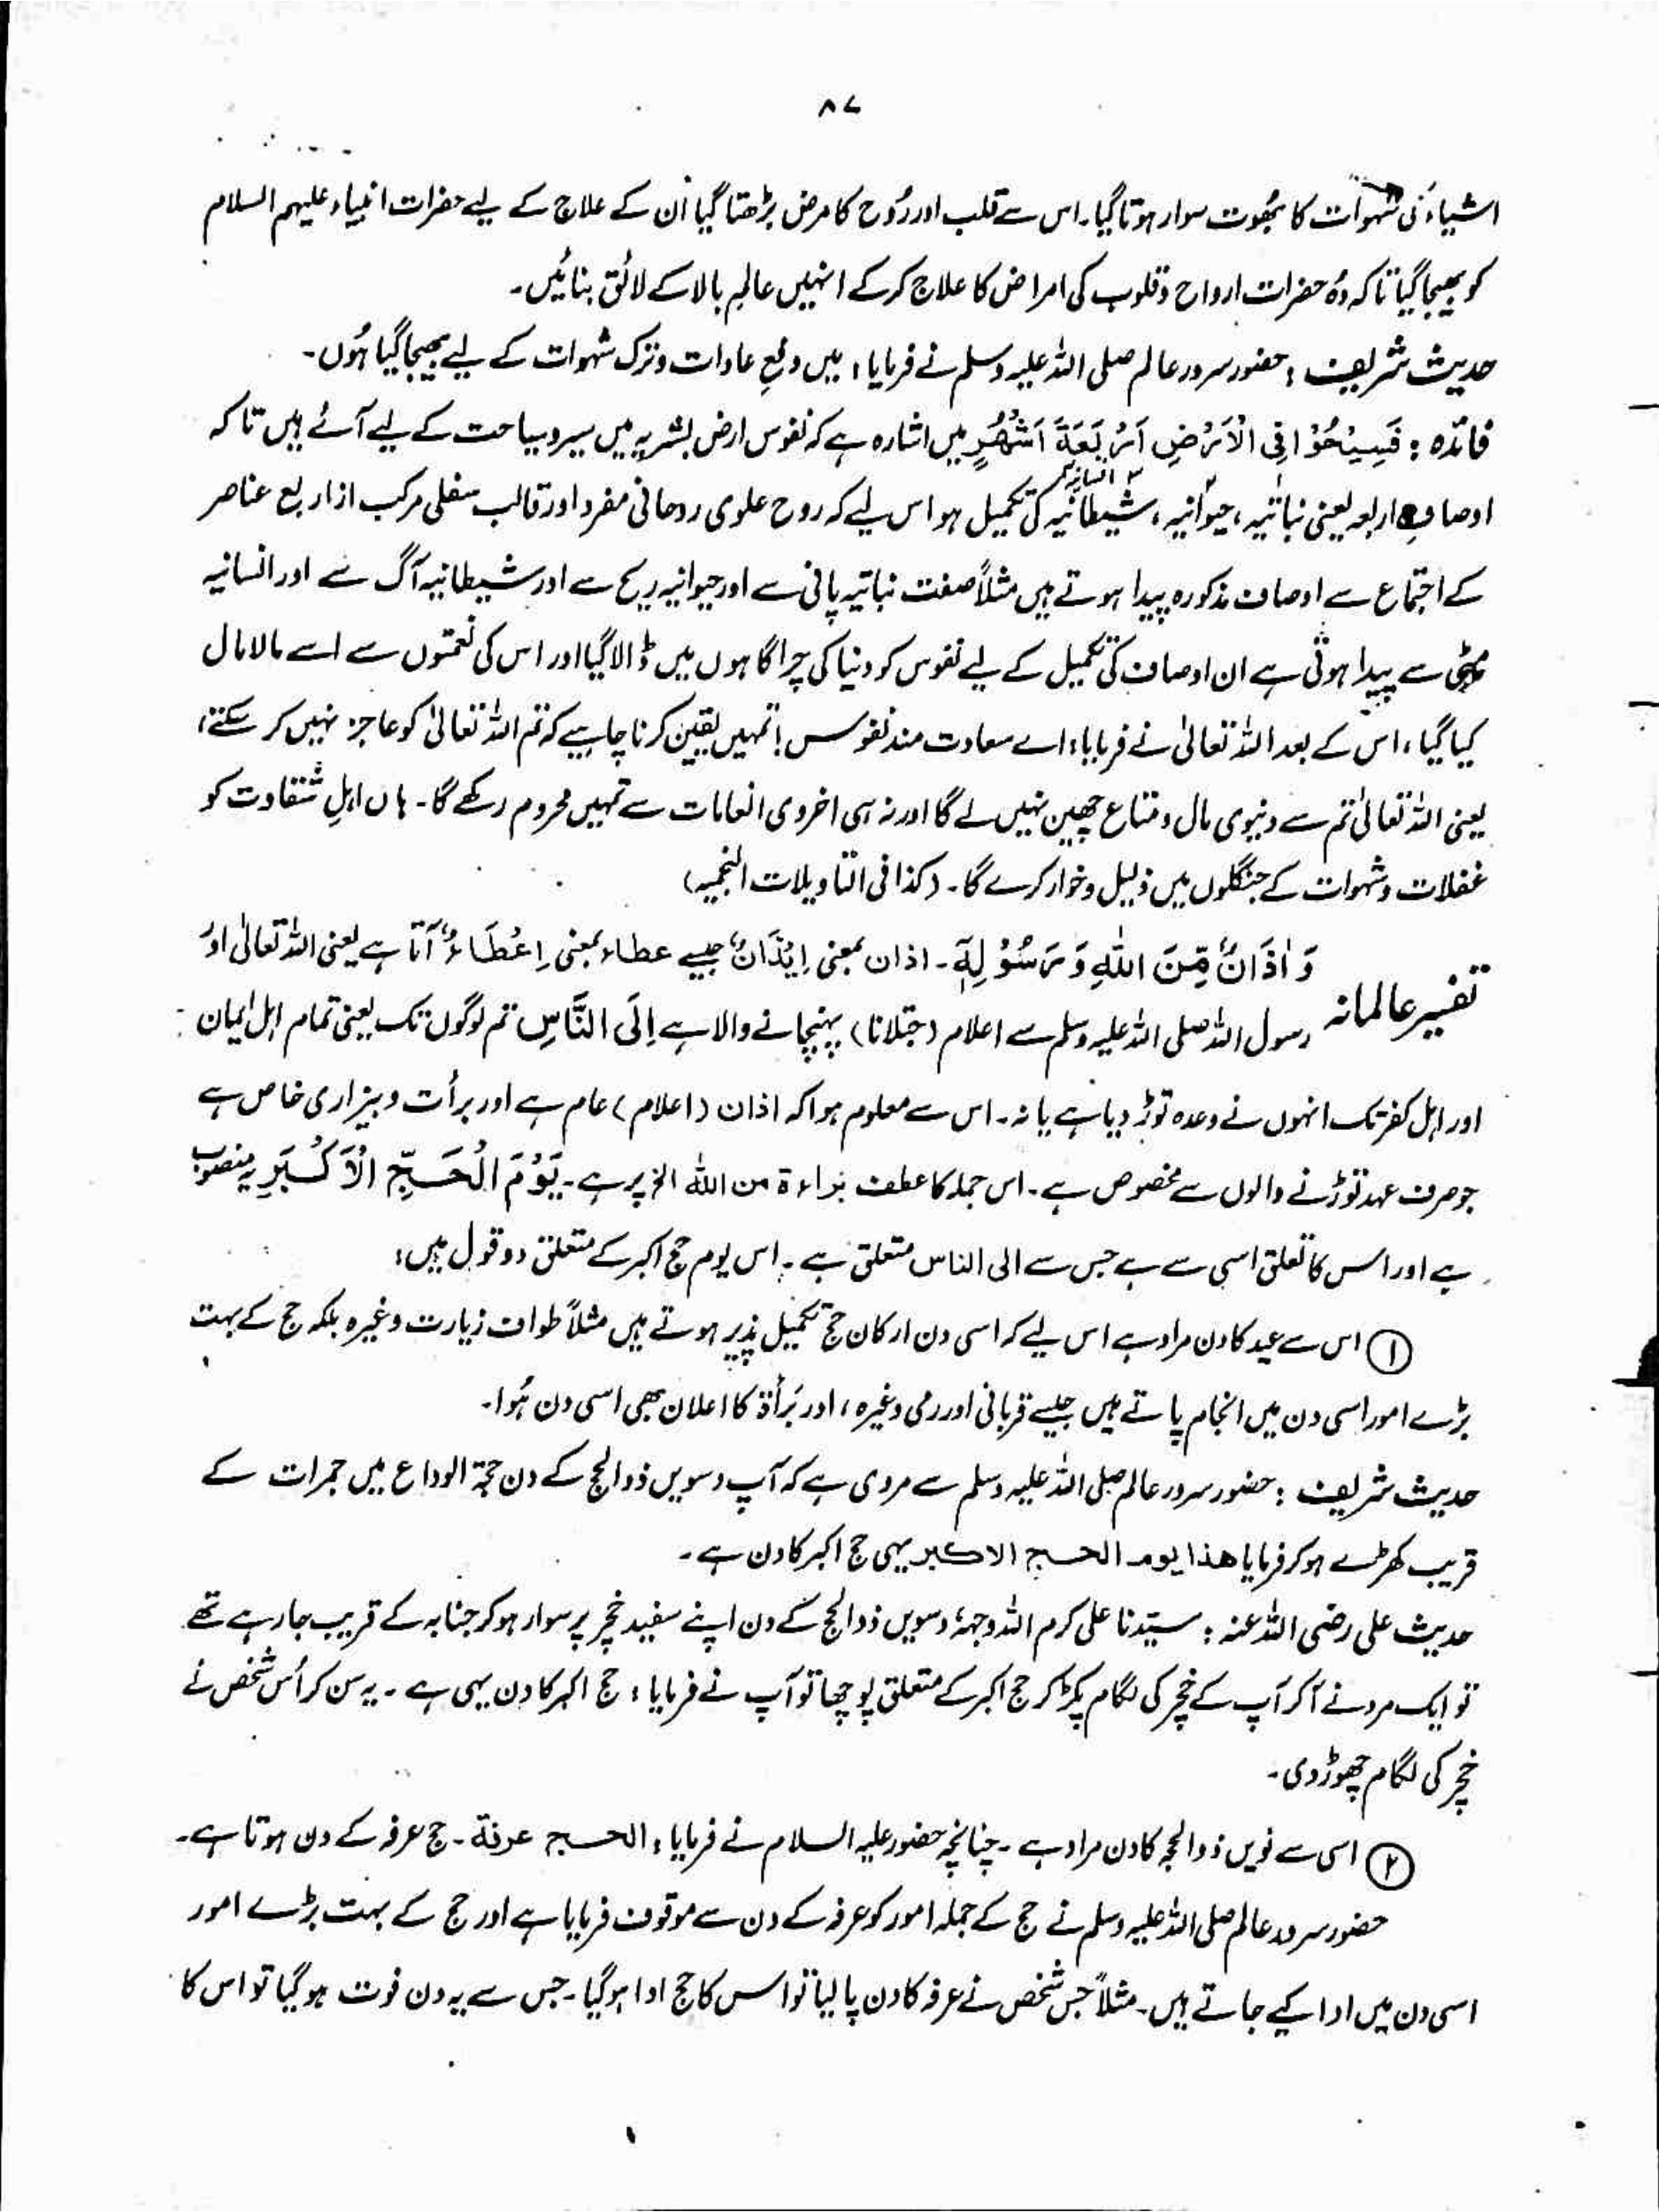 ۸۷
اشیاء کی شہوات کا بھُوت سوار ہوتا گیا۔ اس سے قلب اور رُوح کا مرض بڑھتا گیا اُن کے علاج کے لیے حضرات انبیاء علیہم السلام
کو بھیجا گیا تاکہ وُہ حضرات ارواح و قلوب کی امراض کا علاج کرکے انہیں عالمِ بالا کے لائق بنائیں۔
حدیث شریف : حضور سرور عالم صلی اللہ علیہ وسلم نے فرمایا : میں دفعِ عادات و ترک شہوات کے لیے بھیجا گیا ہُوں۔
فائدہ : فَسِیْحُوْا فِی الْاَرْضِ اَرْبَعَۃَ اَشْھُرٍ میں اشارہ ہے کہ نفوس ارض بشریہ میں سیر و سیاحت کے لیے آئے ہیں تاکہ
اوصافِ اربعہ یعنی نباتیہ، حیوانیہ، شیطانیہ، انسانیہ کی تکمیل ہو اس لیے کہ روح علوی روحانی مفرد اور قالب سفلی مرکب از اربع عناصر
کے اجتماع سے اوصاف مذکورہ پیدا ہوتے ہیں مثلاً صفت نباتیہ پانی سے اور حیوانیہ ریح سے اور شیطانیہ آگ سے اور انسانیہ
مٹی سے پیدا ہوتی ہے ان اوصاف کی تکمیل کے لیے نفوس کو دنیا کی چراگاہوں میں ڈالا گیا اور اس کی نعمتوں سے اسے مالامال
کیا گیا، اس کے بعد اللہ تعالیٰ نے فرمایا : اے سعادت مند نفوس ! تمہیں یقین کرنا چاہیے کہ تم اللہ تعالیٰ کو عاجز نہیں کر سکتے،
یعنی اللہ تعالیٰ تم سے دنیوی مال و متاع چھین نہیں لے گا اور نہ ہی اخروی انعامات سے تمہیں محروم رکھے گا۔ ہاں اہلِ شقاوت کو
غفلات و شہوات کے جنگلوں میں ذلیل و خوار کرے گا۔ (کذا فی التاویلات النجمیہ)
تفسیر عالمانہ وَاَذَانٌ مِّنَ اللّٰہِ وَرَسُوْلِہٖٓ۔ اذان بمعنی اِیْذَانٌ جیسے عطاء بمعنی اِعْطَاءٌ آتا ہے یعنی اللہ تعالیٰ اور
رسول اللہ صلی اللہ علیہ وسلم سے اعلام (جتلانا) پہنچانے والا ہے اِلَی النَّاسِ تم لوگوں تک یعنی تمام اہل ایمان
اور اہل کفر تک انہوں نے وعدہ توڑ دیا ہے یا نہ۔ اس سے معلوم ہوا کہ اذان (اعلام) عام ہے اور برأت و بیزاری خاص ہے
جو صرف عہد توڑنے والوں سے مخصوص ہے۔ اس جملہ کا عطف براءۃ من اللہ الخ پر ہے۔ یَوْمَ الْحَجِّ الْاَکْبَرِ یہ منصوب
ہے اور اس کا تعلق اسی سے ہے جس سے الی الناس متعلق ہے۔ اس یوم حج اکبر کے متعلق دو قول ہیں :
① اس سے عید کا دن مراد ہے اس لیے کہ اسی دن ارکان حج تکمیل پذیر ہوتے ہیں مثلاً طواف زیارت وغیرہ بلکہ حج کے بہت
بڑے امور اسی دن میں انجام پاتے ہیں جیسے قربانی اور رمی وغیرہ، اور بَرأۃ کا اعلان بھی اسی دن ہُوا۔
حدیث شریف : حضور سرور عالم صلی اللہ علیہ وسلم سے مروی ہے کہ آپ دسویں ذوالحج کے دن حجۃ الوداع میں جمرات کے
قریب کھڑے ہو کر فرمایا ھذا یوم الحج الاکبر یہی حج اکبر کا دن ہے۔
حدیث علی رضی اللہ عنہ : سیّدنا علی کرم اللہ وجہہٗ دسویں ذوالحج کے دن اپنے سفید خچر پر سوار ہو کر جنابہ کے قریب جا رہے تھے
تو ایک مرد نے آکر آپ کے خچر کی لگام پکڑ کر حج اکبر کے متعلق پوچھا تو آپ نے فرمایا : حج اکبر کا دن یہی ہے۔ یہ سن کر اُس شخص نے
خچر کی لگام چھوڑ دی۔
② اسی سے نویں ذوالحجہ کا دن مراد ہے۔ چنانچہ حضور علیہ السلام نے فرمایا : الحج عرفۃ۔ حج عرفہ کے دن ہوتا ہے۔
حضور سرور عالم صلی اللہ علیہ وسلم نے حج کے جملہ امور کو عرفہ کے دن سے موقوف فرمایا ہے اور حج کے بہت بڑے امور
اسی دن میں ادا کیے جاتے ہیں۔ مثلاً جس شخص نے عرفہ کا دن پا لیا تو اس کا حج ادا ہو گیا۔ جس سے یہ دن فوت ہو گیا تو اس کا